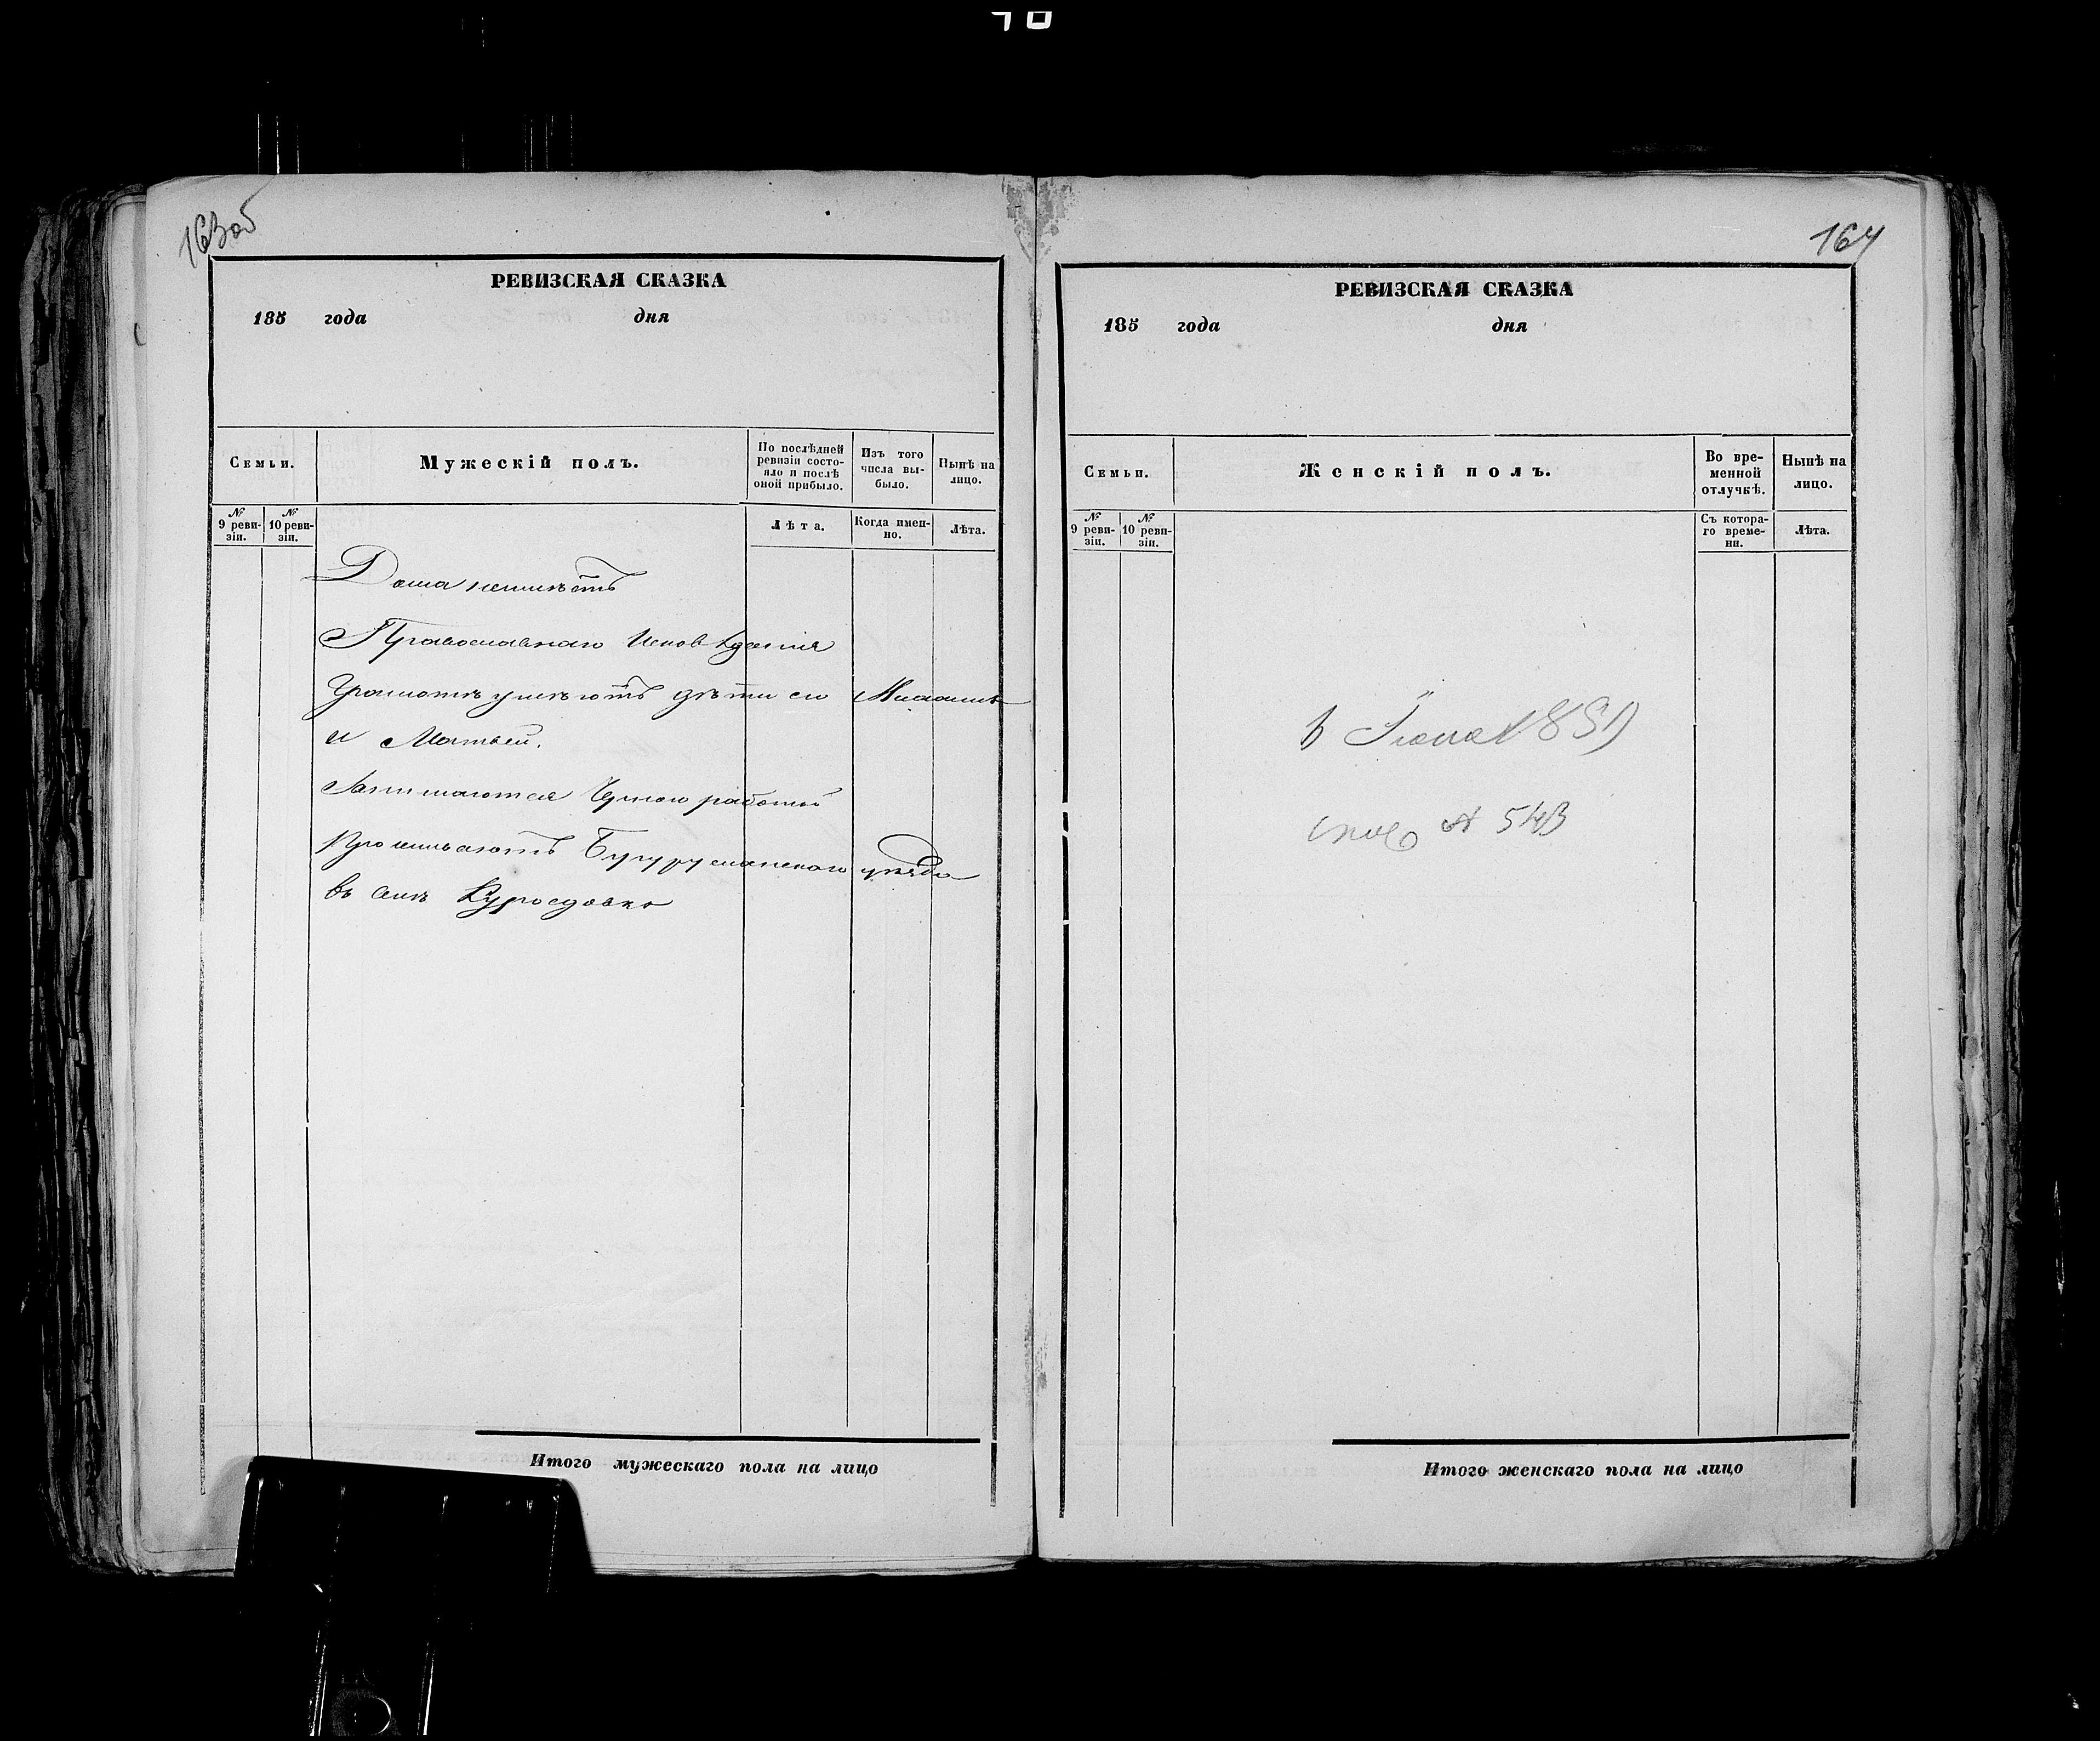 163об
РЕВИЗСКАЯ СКАЗКА
185 года дня
Семьи.
Мужескій полъ.
По послѣдней ревизіи состояло и послѣ оной прибыло.
Изъ того числа выбыло.
Нынѣ на лицо.
№ 9 ревизіи.
№ 10 ревизіи.
Лѣта.
Когда именно.
Лѣта.
Дома неимѣетъ
Православнаго Исповѣданія
Грамотѣ умѣютъ дѣти ею
и Матвей.
Занимаются Черною работой
Проживаютъ Бугурусланскаго уѣзда
въ селѣ Куроедовке
Итого мужескаго пола на лицо
164
РЕВИЗСКАЯ СКАЗКА
185 года дня
Семьи.
Женскій полъ.
Во временной отлучкѣ.
Нынѣ на лицо.
№ 9 ревизіи.
№ 10 ревизіи.
Съ котораго времени.
Лѣта.
543
Итого женскаго пола на лицо